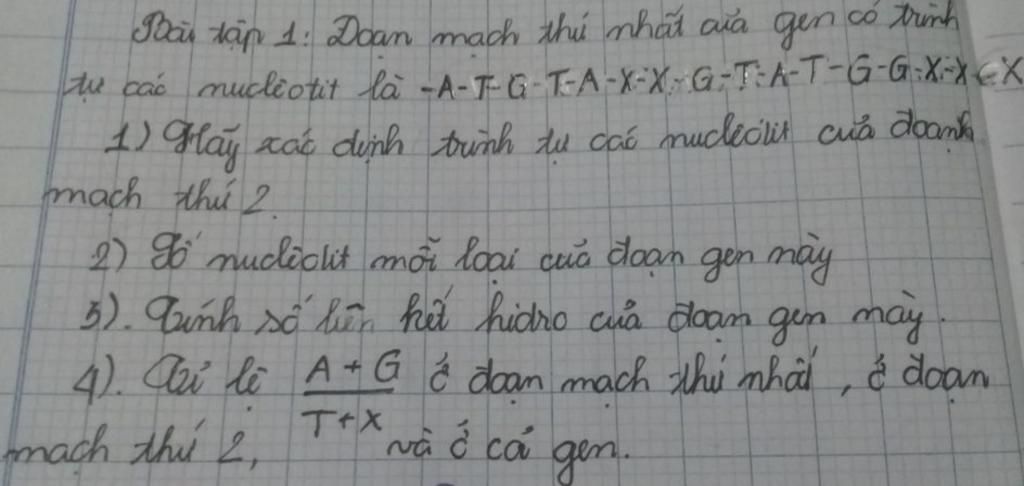 Bài tập 1: Đoạn mạch thứ nhất của gen có trình
tự các nuclêotit là -A-T-G-T-A-X-X-G-T-A-T-G-G-X-X-X
1) Hãy xác định trình tự các nuclêotit của đoạnh
mạch thứ 2.
2) Số nuclêotit mỗi loại của đoạn gen này
3). Tính số liên kết hiđro của đoạn gen này.
4). Tỉ lệ A + G / T + X ở đoạn mạch thứ nhất, ở đoạn
mạch thứ 2, và ở cả gen.